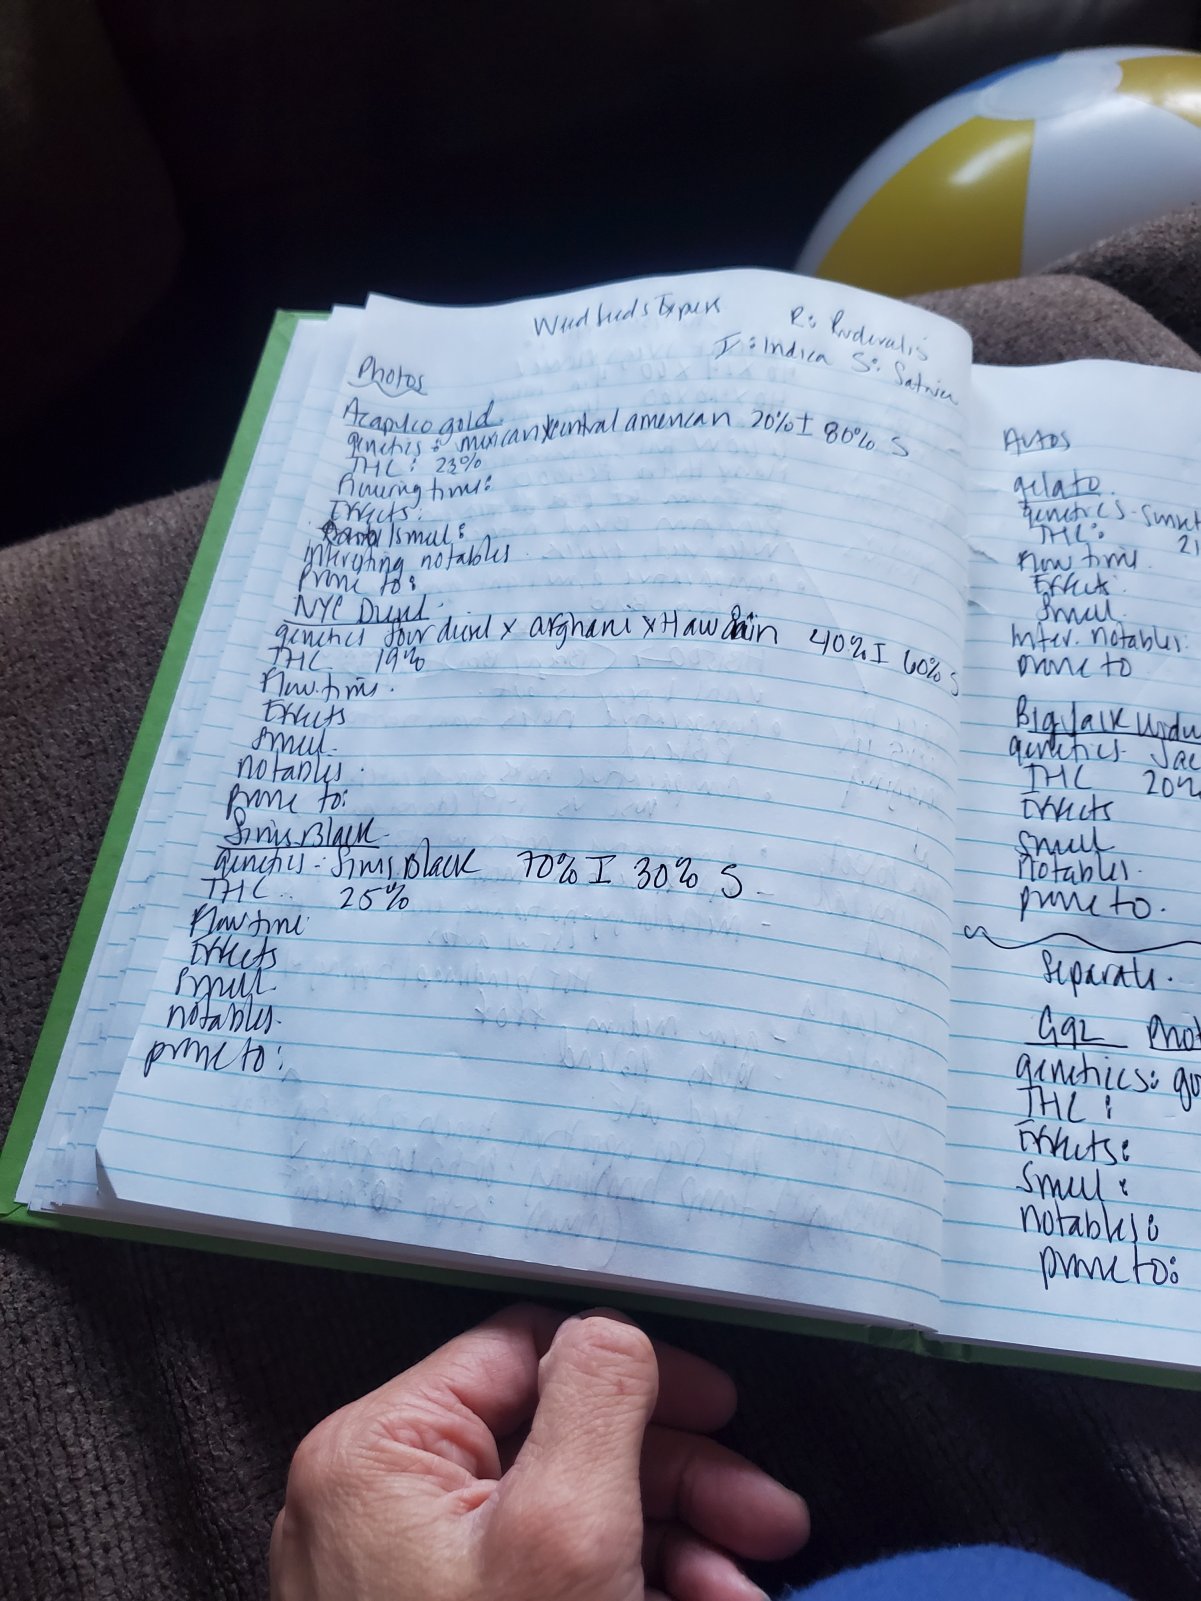 Weed Seeds Express
R: Ruderalis
I: Indica S: Sativa
Photos
Acapulco gold
genetics: mexican x central american 20% I 80% S
THC: 23%
flowering time:
Effects:
Smell:
Interesting notables
prone to:
NYC Diesel
genetics Sour diesel x afghani x Hawaiin 40% I 60% S
THC 19%
Flow.time.
Effects
Smell.
notables.
prone to:
Sirius Black
genetics - Sirius Black 70% I 30% S
THC 25%
Flow time
Effects
Smell.
notables.
prone to:
Autos
gelato
genetics - Sunset
THC: 21
Flow time.
Effects
Smell.
Inter. notables.
prone to
Big Jack
genetics Jac
THC 20%
Effects
Smell
notables.
prone to.
Separate.
Phot
genetics: go
THC:
Effects:
Smell:
notables:
prone to: